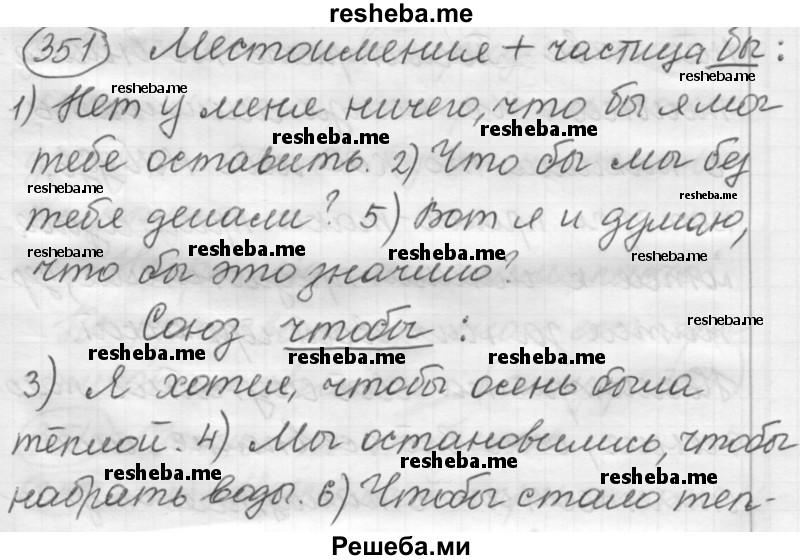 resheba.me
351) Местоимения + частица бы :
resheba.me resheba.me
1) Нет у меня ничего, что бы я мог
resheba.me resheba.me
тебе оставить. 2) Что бы мы без
resheba.me resheba.me
тебя делали? 5) Вот я и думаю,
resheba.me resheba.me resheba.me resheba.me
что бы это значило?
Союз чтобы : resheba.me
resheba.me resheba.me resheba.me
3) Я хотел, чтобы осень была
тёплой. 4) Мы остановились, чтобы
resheba.me resheba.me resheba.me
набрать воды. 6) Чтобы стало теп-
Решеба.ми